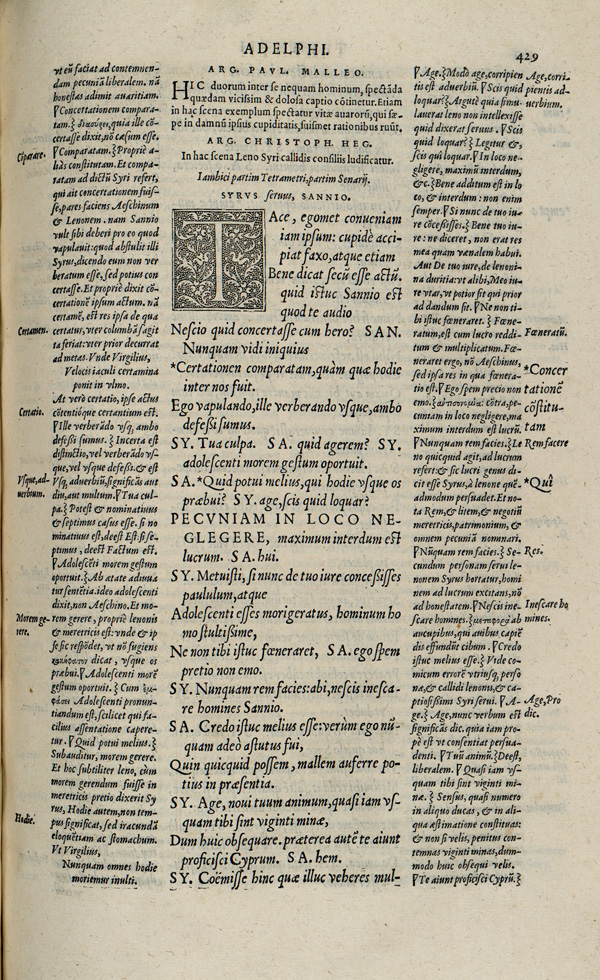 ADELPHI.
429
vt eū faciat ad contemnen-
dam pecuniā liberalem. nā
honestas adimit auaritiam.
Concertationem compara-
tam.} quia ille cō-
certasse dixit, nō cæsum esse.
Cōparare.
Comparatam.} Propriè a-
liàs constitutam. Et compa-
ratam ad dictū Syri refert,
qui ait concertationem fuis-
se, pares faciens Aeschinum
& Lenonem. nam Sannio
vult sibi deberi pro eo quod
vapulauit: quod abstulit illi
Syrus, dicendo eum non ver
beratum esse, sed potius con
certasse. Et propriè dixit cō-
certationē ipsum actum. nā
certamē, est res ipsa de qua
Certamen.
certatur, vter columbā sagit
ta feriat: vter prior decurrat
ad metas. Vnde Virgilius,
Velocis iaculi certamina
ponit in vlmo.
At verò certatio, ipse actus
Certatio.
cōtentióque certantium est.
Ille verberādo vsq, ambo
defeßi sumus.} Incerta est
distinctio, vel verberādo vs-
que, vel vsque defeßi. & est
Vsq, ad-
uerbium.
Vsq, aduerbiū, significās aut
diu, aut multum. Tua cul-
pa.} Potest & nominatiuus
& septimus casus esse. si no
minatiuus est, deest Est. si se-
ptimus, deest Factum est.
Adolescēti morem gestum
oportuit.} Ab ætate adiuua
tur sentētia. ideo adolescenti
dixit, non Aeschino. Et mo-
Morem ge-
rere.
rem gerere, propriè lenonis
& meretricis est: vnde & ip
se sic respōdet, vt nō fugiens
dicat, vsque os
præbui. Adolescenti morē
gestum oportuit.} Cum
Adolescenti pronun-
tiandum est, scilicet qui fa-
cilius assentatione capere-
tur. Quid potui melius.}
Subauditur, morem gerere.
Et hoc subtiliter leno, cùm
morem gerendum fuisse in
meretricis pretio dixerit Sy
Hodie.
rus, Hodie autem, non tem-
pus significat, sed iracundā
eloquētiam ac stomachum.
Vt Virgilius,
Nunquam omnes hodie
moriemur inulti.
ARG. PAVL. MALLEO.
HIC duorum inter se nequam hominum, spectāda
quædam vicissim & dolosa captio cōtinetur. Etiam
in hac scena exemplum spectatur vitæ auarorū, qui sæ-
pe in damnū ipsius cupiditatis, suiisinet rationibus ruūt.
ARG. CHRISTOPH. HEG.
In hac scena Leno Syri callidis consiliis ludificatur.
Iambici partim Tetrametri, partim Senarij.
SYRVS seruus, SANNIO.
TAce, egomet conueniam
iam ipsum: cupidè acci-
piat faxo, atque etiam
Bene dicat secū esse actū.
quid istuc Sannio est
quod te audio
Nescio quid concertasse cum hero? SAN.
Nunquam vidi iniquius
*Certationen comparatam, quàm quæ hodie
inter nos fuit.
Ego vapulando, ille verberando vsque, ambo
defeßi sumus.
SY. Tua culpa. SA. quid agerem? SY.
adolescenti morem gestum oportuit.
SA. *Quid potui melius, qui hodie vsque os
præbui? SY. age, scis quid loquar?
PECVNIAM IN LOCO NE-
GLEGERE, maximum interdum est
lucrum. SA. hui.
SY. Metuisti, si nunc de tuo iure conceßisses
paululum, atque
Adolescenti esses morigeratus, hominum ho
mo stultissime,
Ne non tibi istuc fœneraret, SA. ego spem
pretio non emo.
SY. Nunquam rem facies: abi, nescis inesca-
re homines Sannio.
SA. Credo istuc melius esse: verùm ego nū-
quam adeò astutus fui,
Quin quicquid possem, mallem auferre po-
tius in præsentia.
SY. Age, noui tuum animum, quasi iam vs-
quam tibi sint viginti minæ,
Dum huic obsequare. præterea autē te aiunt
proficisci Cyprum. SA. hem.
SY. Coëmisse hinc quæ illuc veheres mul-
Age.} Modò age, corripien
tis est aduerbiū. Scis quid
loquar? Argutè quia sinu-
lauerat leno non intellexisse
quid dixerat seruus. Scis
quid loquar?} Legitur &,
scis quō loquar. In loco ne-
gligere, maximū interdum,
&c.} Bene additum est in lo
co, & interdum: non enim
semper. Si nunc de tuo iu-
re cōcesisses. Bene tuo iu-
re: ne diceret, non erat res
mea quam vanalem habui.
Aut De tuo iure, de lenoni-
na duritia: vt alibi, Meo iu-
re vtar, vt potior sit qui prior
ad dandum sit. Ne non ti-
bi istuc fœneraret.} Fœne-
ratum, est cum lucro reddi-
tum & multiplicatum. Fœ-
neraret ergo, nō Aeschinus,
sed ipsa res in qua fœnera-
tio est. Ego spem precio non
emo.} cōtra, pe-
cuniam in loco negligere, ma
ximum interdum est lucrū.
Nunquam rem facies.} Le
no quicquid agit, ad lucrum
refert: & sic lucri genus di-
cit esse Syrus, à lenone quē-
admodum persuadet. Et no-
ta Rem, & litem, & negotiū
meretricis, patrimonium, &
omnem pecuniā nominari.
Nūquam rem facies.} Se-
cundum personam serui le-
nonem Syrus hortatur, homi
nem ad lucrum excitans, nō
ad honestatem. Nescis ine-
scare homines.} ab
aucupibus, qui auibus capiē
dis effundūt cibum. Credo
istuc melius esse.} Vide co-
micum errorē vtriusq, perso
na, & callidi lenonis, & ca-
ptiosissimi Syri serui. A-
ge.} Age, nunc verbum est
significās dic. quia iam pro-
pè est vt consentiat persua-
denti. Tuū animū.} Deest,
liberalem. Quasi iam vs-
quam tibi sint viginti mi-
næ.} Sensus, quasi numero
in aliquo ducas, & in ali-
qua æstimatione constituas:
& non si velis, penitus con-
temnas viginti minas, dum-
modo huic obsequi velis.
Te aiunt proficisci Cyprū.}
Age, corri-
pientis ad-
uerbium.
Fœneratū.
*Concer
tationē
cōstitu-
tam
Rem facere
*Qui
Res.
Inescare ho
mines.
Age, pro
dic.